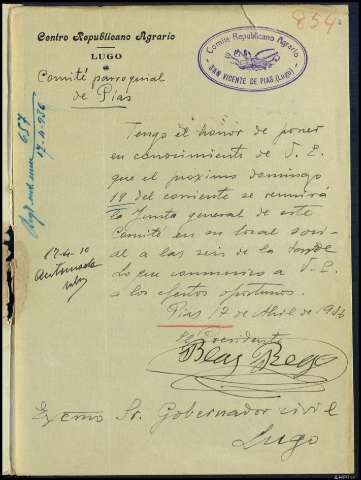 854
Centro Republicano Agrario
LUGO
Comité Republicano Agrario
SAN VICENTE DE PIAS (Lugo)
Comité parroquial
de Pías
657
17-4-936
Tengo el honor de poner
en conocimiento de V. E.
que el proximo domingo
19 del corriente se reunirá
la Junta general de este
Comité en su local soci-
al a las seis de la tarde
Lo que comunico a V. E.
a los efectos oportunos.
Pias 17 de Abril de 1936
El Presidente
Blas Rego
Excmo Sr. Gobernador civil
Lugo